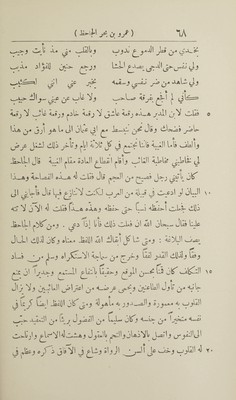 ٦٨ ( عمرو بن بحر الجاحظ )
بخدي من قطر الدموع ندوب وبالقلب مني مذ نأيت وجيب
ولي نفس حتى الدجى يصدع الحشا ورجع حنين للفؤاد مذيب
ولي شاهد من ضر نفسي وسقمه يخبر عني انني لكئيب
كأني لم أفجع بفرقة صاحب ولا غاب عن عيني سواك حبيب
٥ فقلت لابن المدبر هذه رقعة عاشق لا رقعة خادم ورقعة غائب لا رقعة
حاضر فضحك وقال نحن ننبسط مع ابي عثمان الى ما هو أرق من هذا
وألطف فأما الغيبة فاننا نجتمع في كل ثلاثة ايام وتأخر ذلك لشغل عرض
لي فخاطبني مخاطبة الغائب وأقام انقطاع العادة مقام الغيبة قال الجاحظ
كان يأتيني رجل فصيح من العجم قال فقلت له هذه الفصاحة وهذا
١٠ البيان لو ادعيت في قبيلة من العرب لكنت لا تنازع فيها قال فأجابني الى
ذلك فجعلت أحفظه نسبا حتى حفظه وهذه هذا فقلت له الآن لا تته
علينا فقال سبحان الله ان فعلت ذلك فأنا اذا دعي ومن كلام الجاحظ
يصف البلاغة ومتى شاكل أبقاك الله اللفظ معناه وكان لذلك الحال
وفقا ولذلك القدر لفقا وخرج من سماجة الاستكراه وسلم من فساد
١٥ التكلف كان قمنا بحسن الموقع وحقيقا بانتفاع المستمع وجديرا ان يمنع
جانبه من تأول الطاعنين ويحمى عرضه من اعتراض العائبين ولا يزال
القلوب به معمورة والصدور به مأهولة ومتى كان اللفظ ايضا كريما في
نفسه متخيرا من جنسه وكان سليما من الفضول بريئا من التعقيد حبب
الى النفوس واتصل بالاذهان والتحم بالعقول وهشت له الاسماع وارتاحت
٢٠ له القلوب وخف على ألسن الرواة وشاع في الآفاق ذكره وعظم في